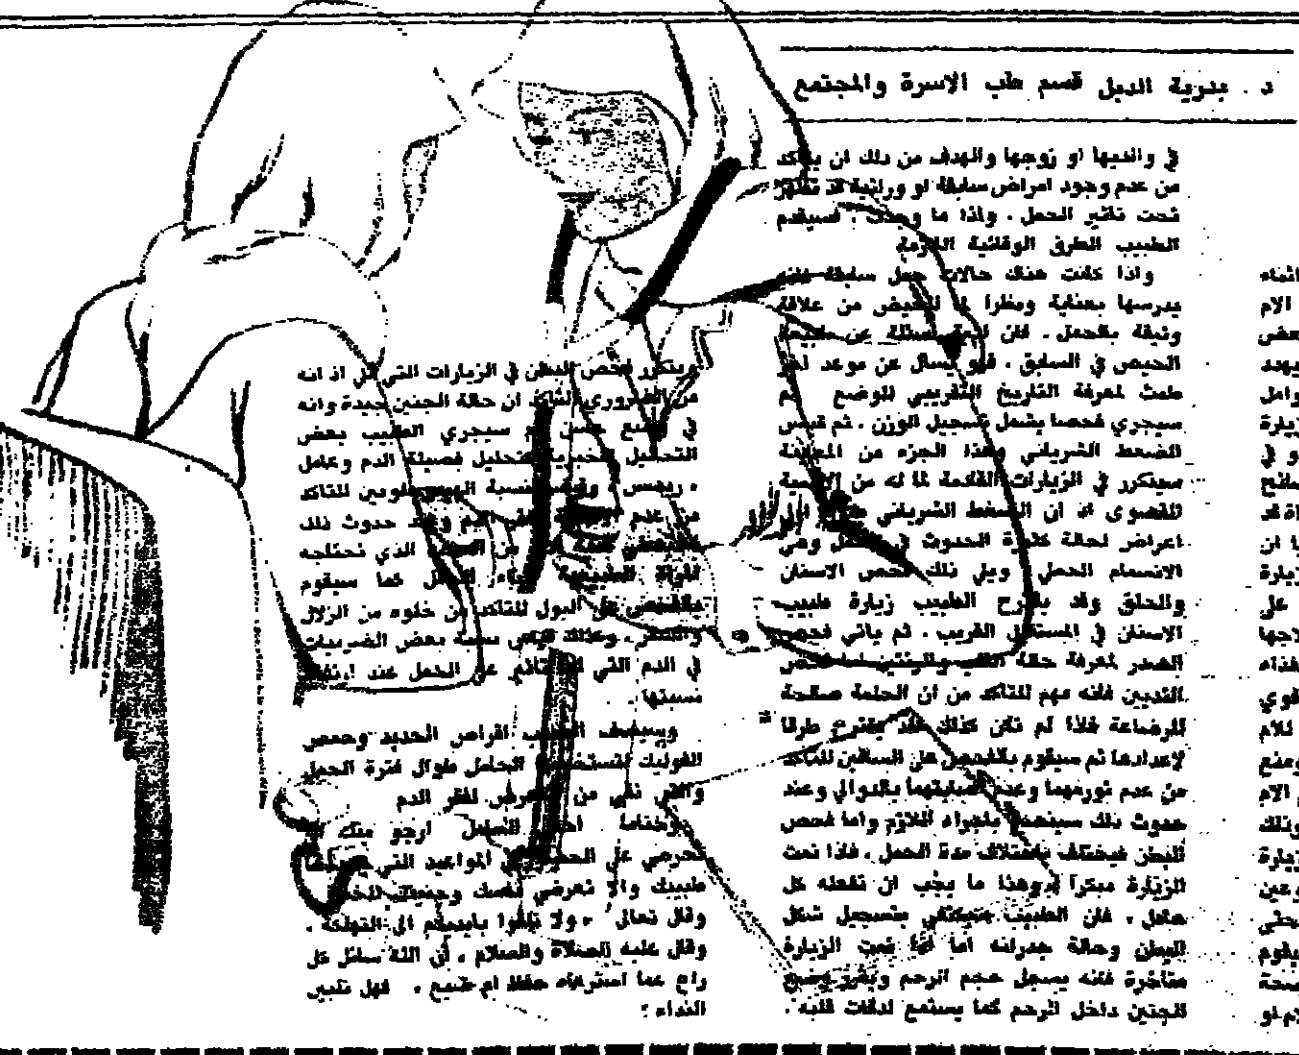 د . بدرية الدبل قسم طب الاسرة والمجتمع
في والديها او زوجها والهدف من ذلك ان يتأكد
من عدم وجود امراض سابقة او وراثية قد تظهر
تحت تاثير الحمل . واذا ما وجدت ، فسيقدم
الطبيب الطرق الوقائية اللازمة
واذا كانت هناك حالات حمل سابقة فانه
يدرسها بعناية ونظرا لما للحيض من علاقة
وثيقة بالحمل . فان اسئلة عن طبيعة
الحيض في السابق . فهو يسأل عن موعد اخر
طمث لمعرفة التاريخ التقريبي للوضع ثم
سيجري فحصا يشمل تسجيل الوزن . ثم قياس
الضغط الشرياني وهذا الجزء من المعاينة
سيتكرر في الزيارات القادمة لما له من الاهمية
القصوى اذ ان الضغط الشرياني اول
اعراض لحالة كثيرة الحدوث في الحمل وهي
الانسمام الحملي ويلي ذلك فحص الاسنان
والحلق وقد يقترح الطبيب زيارة طبيب
الاسنان في المستقبل القريب . ثم ياتي فحص
الصدر لمعرفة حالة القلب والرئتين اما فحص
الثديين فانه مهم للتاكد من ان الحلمة صالحة
للرضاعة فاذا لم تكن كذلك فقد يقترح طرقا
لإعدادها ثم سيقوم بالفحص على الساقين للتأكد
من عدم تورمهما وعدم اصابتهما بالدوالي وعند
حدوث ذلك سينصح باجراء اللازم واما فحص
البطن فيختلف باختلاف مدة الحمل . فاذا تمت
الزيارة مبكرا وهذا ما يجب ان تفعله كل
حامل . فان الطبيب سيكتفي بتسجيل شكل
البطن وحالة جدرانه اما اذا تمت الزيارة
متأخرة فانه يسجل حجم الرحم ويقرر وضع
الجنين داخل الرحم كما يستمع لدقات قلبه .
ويتكرر فحص البطن في الزيارات التي تلي اذ انه
من الضروري التاكد ان حالة الجنين جيدة وانه
في وضع حسن ثم سيجري الطبيب بعض
التحاليل المخبرية كتحليل فصيلة الدم وعامل
« ريسس » ونسبة الهيموجلوبين للتاكد
من عدم فقر الدم وعند حدوث ذلك
من الحديد الذي تحتاجه
المراة الطبيعية اثناء الحمل كما سيقوم
بالفحص على البول للتاكد من خلوه من الزلال
والسكر . وكذلك قياس نسبة بعض الفيروسات
في الدم التي لها تاثير على الحمل عند ارتفاع
نسبتها .
وسيصف الطبيب اقراص الحديد وحمض
الفوليك لتستخدمها الحامل طوال فترة الحمل
والتي تقي من التعرض لفقر الدم
وختاما اختي الحامل ارجو منك ان
تحرصي على الحضور في المواعيد التي يحددها
طبيبك والا تعرضي نفسك وجنينك للخطر
وقال تعالى « ولا تلقوا بايديكم الى التهلكة .
وقال عليه الصلاة والسلام . أن الله سائل كل
راع عما استرعاه حفظ ام ضيع » فهل تلبين
النداء ؟
اثناء
الام
بعض
يهدد
زيارة
و في
ا ان
زيارة
على
لاجها
قوي
للام
ومنع
الام
وذلك
زيارة
يقوم